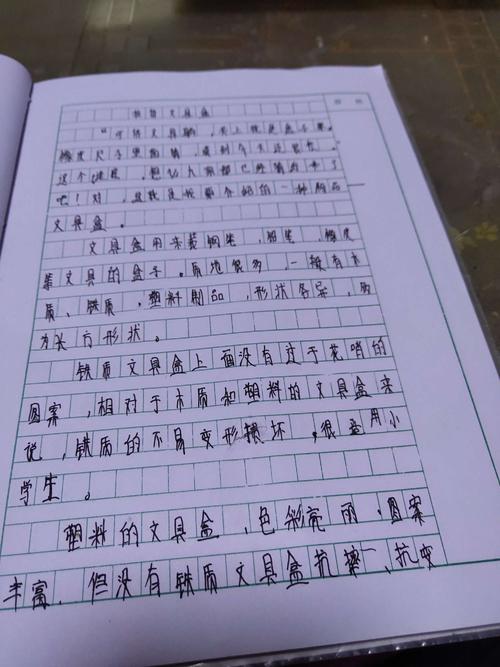 文具盒
"
这个谜底,想必大家都已经猜出来了
吧!对,这就是我要介绍的一种物品
文具盒。
文具盒用来装钢笔,铅笔,橡皮
等文具的盒子。质地很多,一般有木
质、铁质,塑料制品,形状各异,多
为长方形状。
铁质文具盒上面没有过于花哨的
图案,相对于木质和塑料的文具盒来
说,铁质的不易变形损坏,很适用小
学生。
塑料的文具盒,色彩亮丽,图案
丰富,但没有铁质文具盒抗摔、抗变